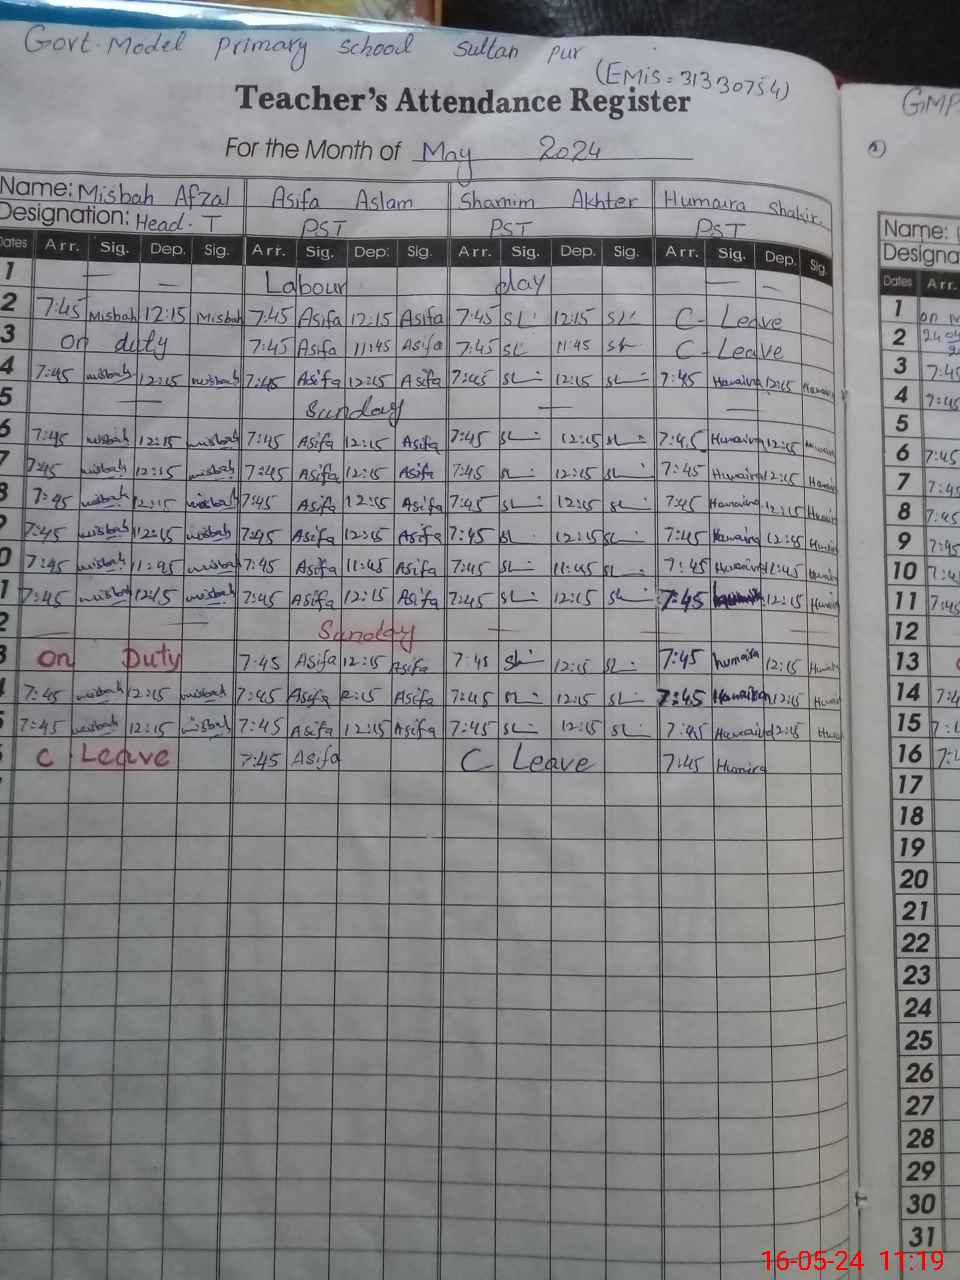 Govt. Model Primary School Sultan pur
(EMis = 31330754)
Teacher's Attendance Register
For the Month of May 2024
Name: Misbah Afzal Asifa Aslam Shamim Akhter Humaira Shakir.
Designation: Head. T PST PST PST
Dates Arr. Sig. Dep. Sig. Arr. Sig. Dep. Sig. Arr. Sig. Dep. Sig. Arr. Sig. Dep. Sig.
1 — — Labour day — —
2 7:45 Misbah 12:15 Misbah 7:45 Asifa 12:15 Asifa 7:45 12:15 C- Leave
3 on duty 7:45 Asifa 11:45 Asifa 7:45 11:45 C- Leave
4 7:45 misbah 12:15 misbah 7:45 Asifa 12:15 Asifa 7:45 12:15 7:45 Humaira 12:15 Humaira
5 — Sunday — —
6 7:45 misbah 12:15 misbah 7:45 Asifa 12:15 Asifa 7:45 12:15 7:45 Humaira 12:15 Humaira
7 7:45 misbah 12:15 misbah 7:45 Asifa 12:15 Asifa 7:45 12:15 7:45 Humaira 12:15
8 7:45 misbah 12:15 misbah 7:45 Asifa 12:15 Asifa 7:45 12:15 7:45 Humaira 12:15
9 7:45 misbah 12:15 misbah 7:45 Asifa 12:15 Asifa 7:45 12:15 7:45 Humaira 12:15
0 7:45 misbah 11:45 misbah 7:45 Asifa 11:45 Asifa 7:45 11:45 7:45 Humaira 11:45
1 7:45 misbah 12:15 misbah 7:45 Asifa 12:15 Asifa 7:45 12:15 7:45 12:15
2 — — Sunday — — —
3 on Duty 7:45 Asifa 12:15 Asifa 7:45 12:15 7:45 humaira 12:15
4 7:45 misbah 12:15 misbah 7:45 Asifa 12:15 Asifa 7:45 12:15 7:45 Humaira 12:15
5 7:45 misbah 12:15 misbah 7:45 Asifa 12:15 Asifa 7:45 12:15 7:45 Humaira 12:15
C Leave 7:45 Asifa C Leave 7:45 Humira
GMP
Name:
Designa
Dates Arr.
1 on
2
3 7:45
4 7:45
5
6 7:45
7 7:45
8 7:45
9 7:45
10 7:4
11 7:45
12
13
14 7:4
15 7:
16 7:
17
18
19
20
21
22
23
24
25
26
27
28
29
30
31
16-05-24 11:19